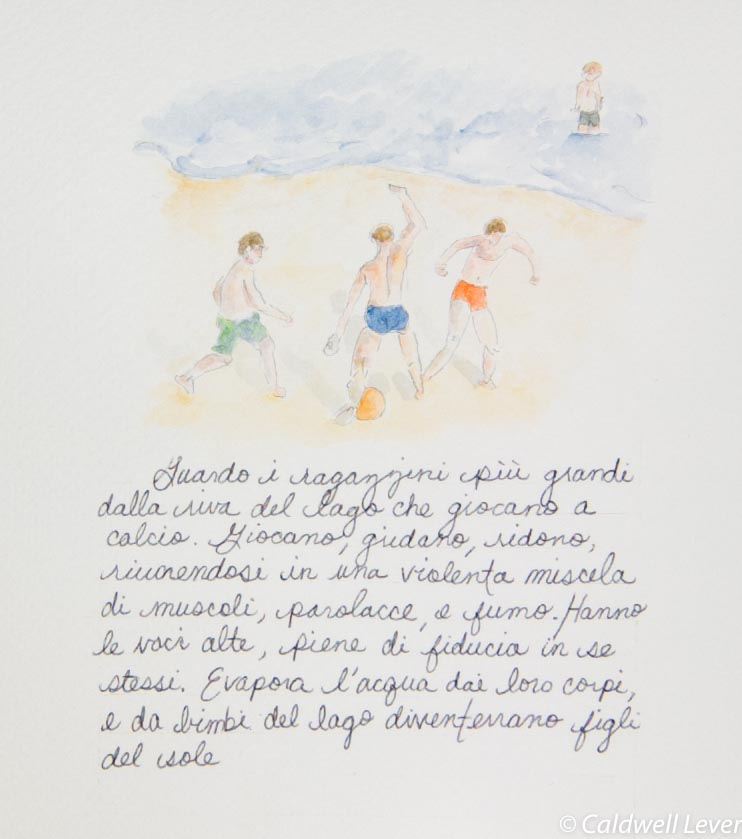 Guardo i ragazzini più grandi
dalla riva del lago che giocano a
calcio. Giocano, gridano, ridono,
riunendosi in una violenta miscela
di muscoli, parolacce, e fumo. Hanno
le voci alte, piene di fiducia in se
stessi. Evapora l'acqua dai loro corpi,
e da bimbi del lago diventerrano figli
del sole
© Caldwell Lever